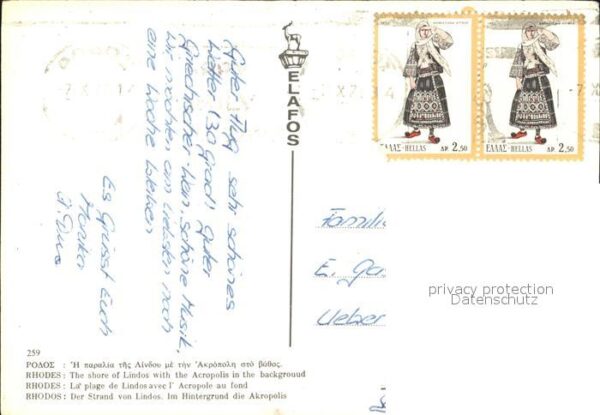 Guter Flug sehr schönes
Wetter (30 Grad) guter
Griechischer Wein, schöne Musik,
wir möchten am liebsten noch
eine Woche bleiben
Es grüsst Euch
Monika
ELAFOS
ΕΛΛΑΣ-HELLAS ΔΡ. 2,50
ΕΛΛΑΣ-HELLAS ΔΡ. 2,50
Famili
E. Ga
Ueber
privacy protection
Datenschutz
259
ΡΟΔΟΣ : Ἡ παραλία τῆς Λίνδου μέ τήν Ἀκρόπολη στό βάθος.
RHODES : The shore of Lindos with the Acropolis in the backgrouud
RHODES : La plage de Lindos avec l' Acropole au fond
RHODOS : Der Strand von Lindos. Im Hintergrund die Akropolis